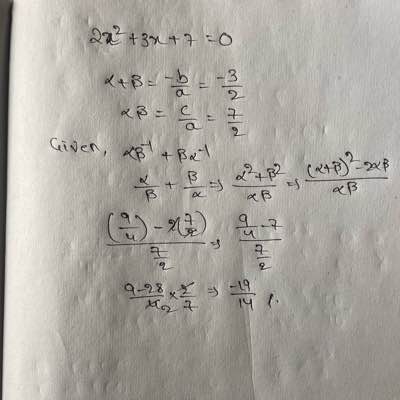 2x² + 3x + 7 = 0
α + β = -b/a = -3/2
αβ = c/a = 7/2
Given, αβ⁻¹ + βα⁻¹
α/β + β/α ⇒ (α² + β²)/αβ ⇒ ((α+β)² - 2αβ)/αβ
((9/4) - 2(7/2))/(7/2) ⇒ (9/4 - 7)/(7/2)
(9-28)/4 2 × 2/7 ⇒ -19/14